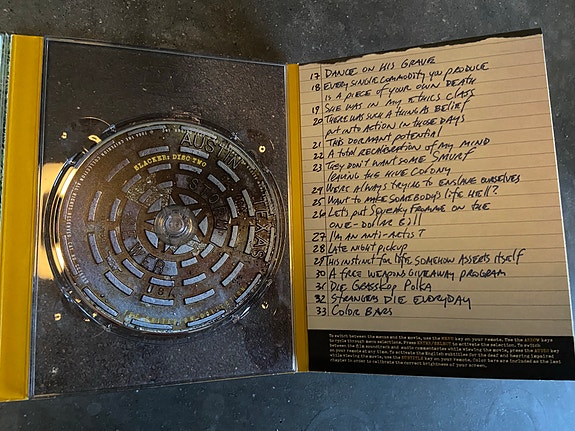 AUSTIN
TEXAS
SLACKER: DISC TWO
17 DANCE ON HIS GRAVE
18 EVERY SINGLE COMMODITY YOU PRODUCE
IS A PIECE OF YOUR OWN DEATH
19 SHE WAS IN MY ETHICS CLASS
20 THERE WAS SUCH A THING AS BELIEF
PUT INTO ACTION IN THOSE DAYS
21 THIS DORMANT POTENTIAL
22 A TOTAL RECALIBRATION OF MY MIND
23 THEY DON'T WANT SOME SMURF
LEAVING THE HIVE COLONY
24 WE'RE ALWAYS TRYING TO ENSLAVE OURSELVES
25 WANT TO MAKE SOMEBODY'S LIFE HELL?
26 LETS PUT SQUEAKY FROMME ON THE
ONE-DOLLAR BILL
27 I'M AN ANTI-ARTIST
28 LATE NIGHT PICKUP
29 HIS INSTINCT FOR LIFE SOMEHOW ASSERTS ITSELF
30 A FREE WEAPONS GIVEAWAY PROGRAM
31 DIE GRASSKOP POLKA
32 STRANGERS DIE EVERYDAY
33 COLOR BARS
To switch between the menus and the movie, use the MENU key on your remote. Use the ARROW keys
to cycle through menu selections. Press ENTER/SELECT to activate the selection. To switch
between the film soundtrack and audio commentaries while viewing the movie, press the AUDIO key
on your remote at any time. To activate the English subtitles for the deaf and hearing impaired
while viewing the movie, use the SUBTITLE key on your remote. Color bars are included as the last
chapter in order to calibrate the correct brightness of your screen.